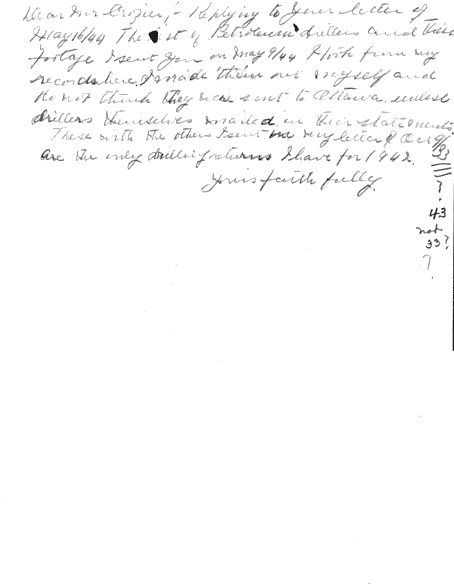 Dear Mr Crozier,- Replying to your letter of
May 16/44 The list of Petroleum drillers and their
footage I sent you on May 9/44 I took from my
records here. I made them out myself and
do not think they were sent to Ottawa. unless
drillers themselves mailed in their statements.
These with the others I sent in my letter of Oct 9/33
are the only drilling returns I have for 1942.
Yours faithfully
?
43
not
33?
?